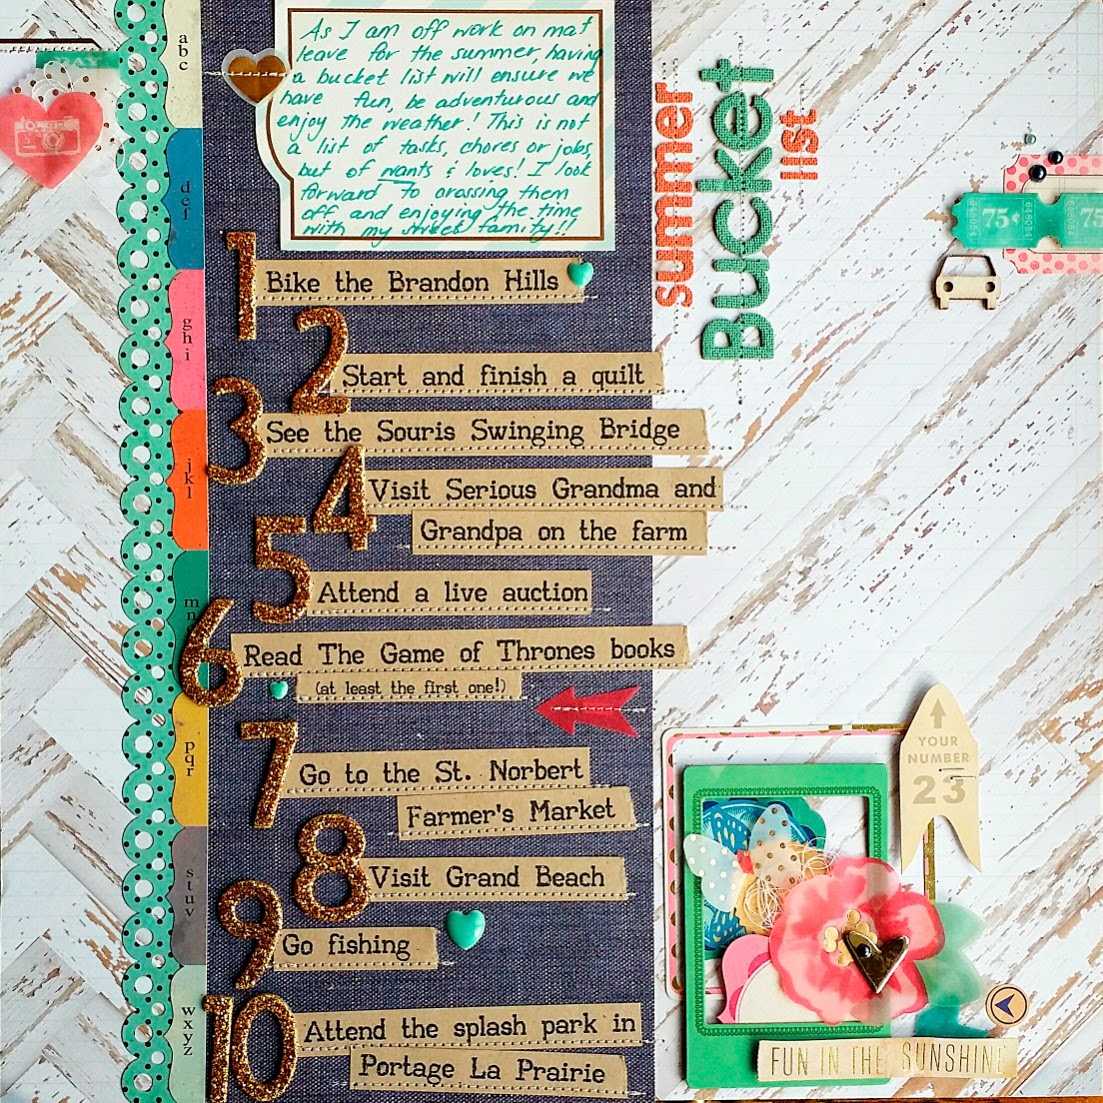 As I am off work on mat
leave for the summer, having
a bucket list will ensure we
have fun, be adventurous and
enjoy the weather! This is not
a list of tasks, chores or jobs,
but of wants & loves! I look
forward to crossing them
off and enjoying the time
with my sweet family!!
summer
Bucket
list
abc
def
ghi
jkl
mn
pqr
stuv
wxyz
75¢
75
1 Bike the Brandon Hills
2 Start and finish a quilt
3 See the Souris Swinging Bridge
4 Visit Serious Grandma and
Grandpa on the farm
5 Attend a live auction
6 Read The Game of Thrones books
(at least the first one!)
7 Go to the St. Norbert
Farmer's Market
8 Visit Grand Beach
9 Go fishing
10 Attend the splash park in
Portage La Prairie
YOUR
NUMBER
23
FUN IN THE SUNSHINE